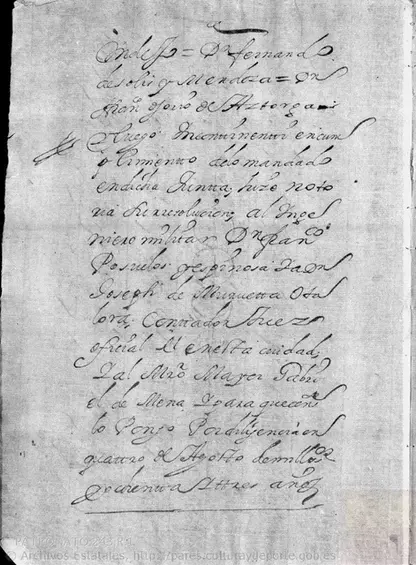 Dn fernando
de solis y Mendoza = Dn
Juan osorio de Aztorga =
E luego Yncontinenti en cum
plimiento de lo mandado
en dicha Junta, hize noto
ria su resoluzion, al Ynge
niero militar Dn franco
Pozuelo y espinosa Ya Dn
Joseph de Murueta Ota
lora, Contador Juez
ofizial Rl en esta ciudad,
Y al Mro Mayor Gabri
el de Mena Y para que conste
lo Pongo Por dilijenzia en
quattro de Agosto de mill
ochenta y ttres años
Archivos estatales, http://pares.culturaydeporte.gob.es